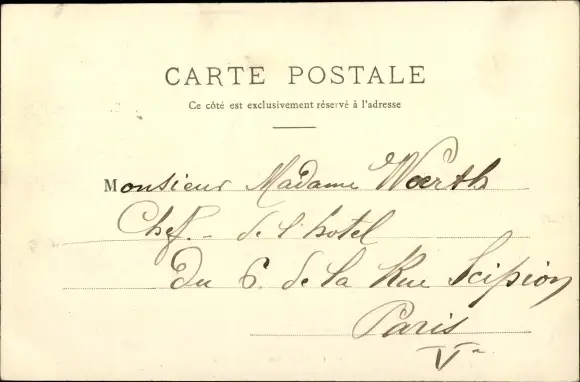 CARTE POSTALE
Ce côté est exclusivement réservé à l'adresse
Monsieur Madame Woerth
Chef. - de l'hotel
Du 6. de la Rue Scipion
Paris
V